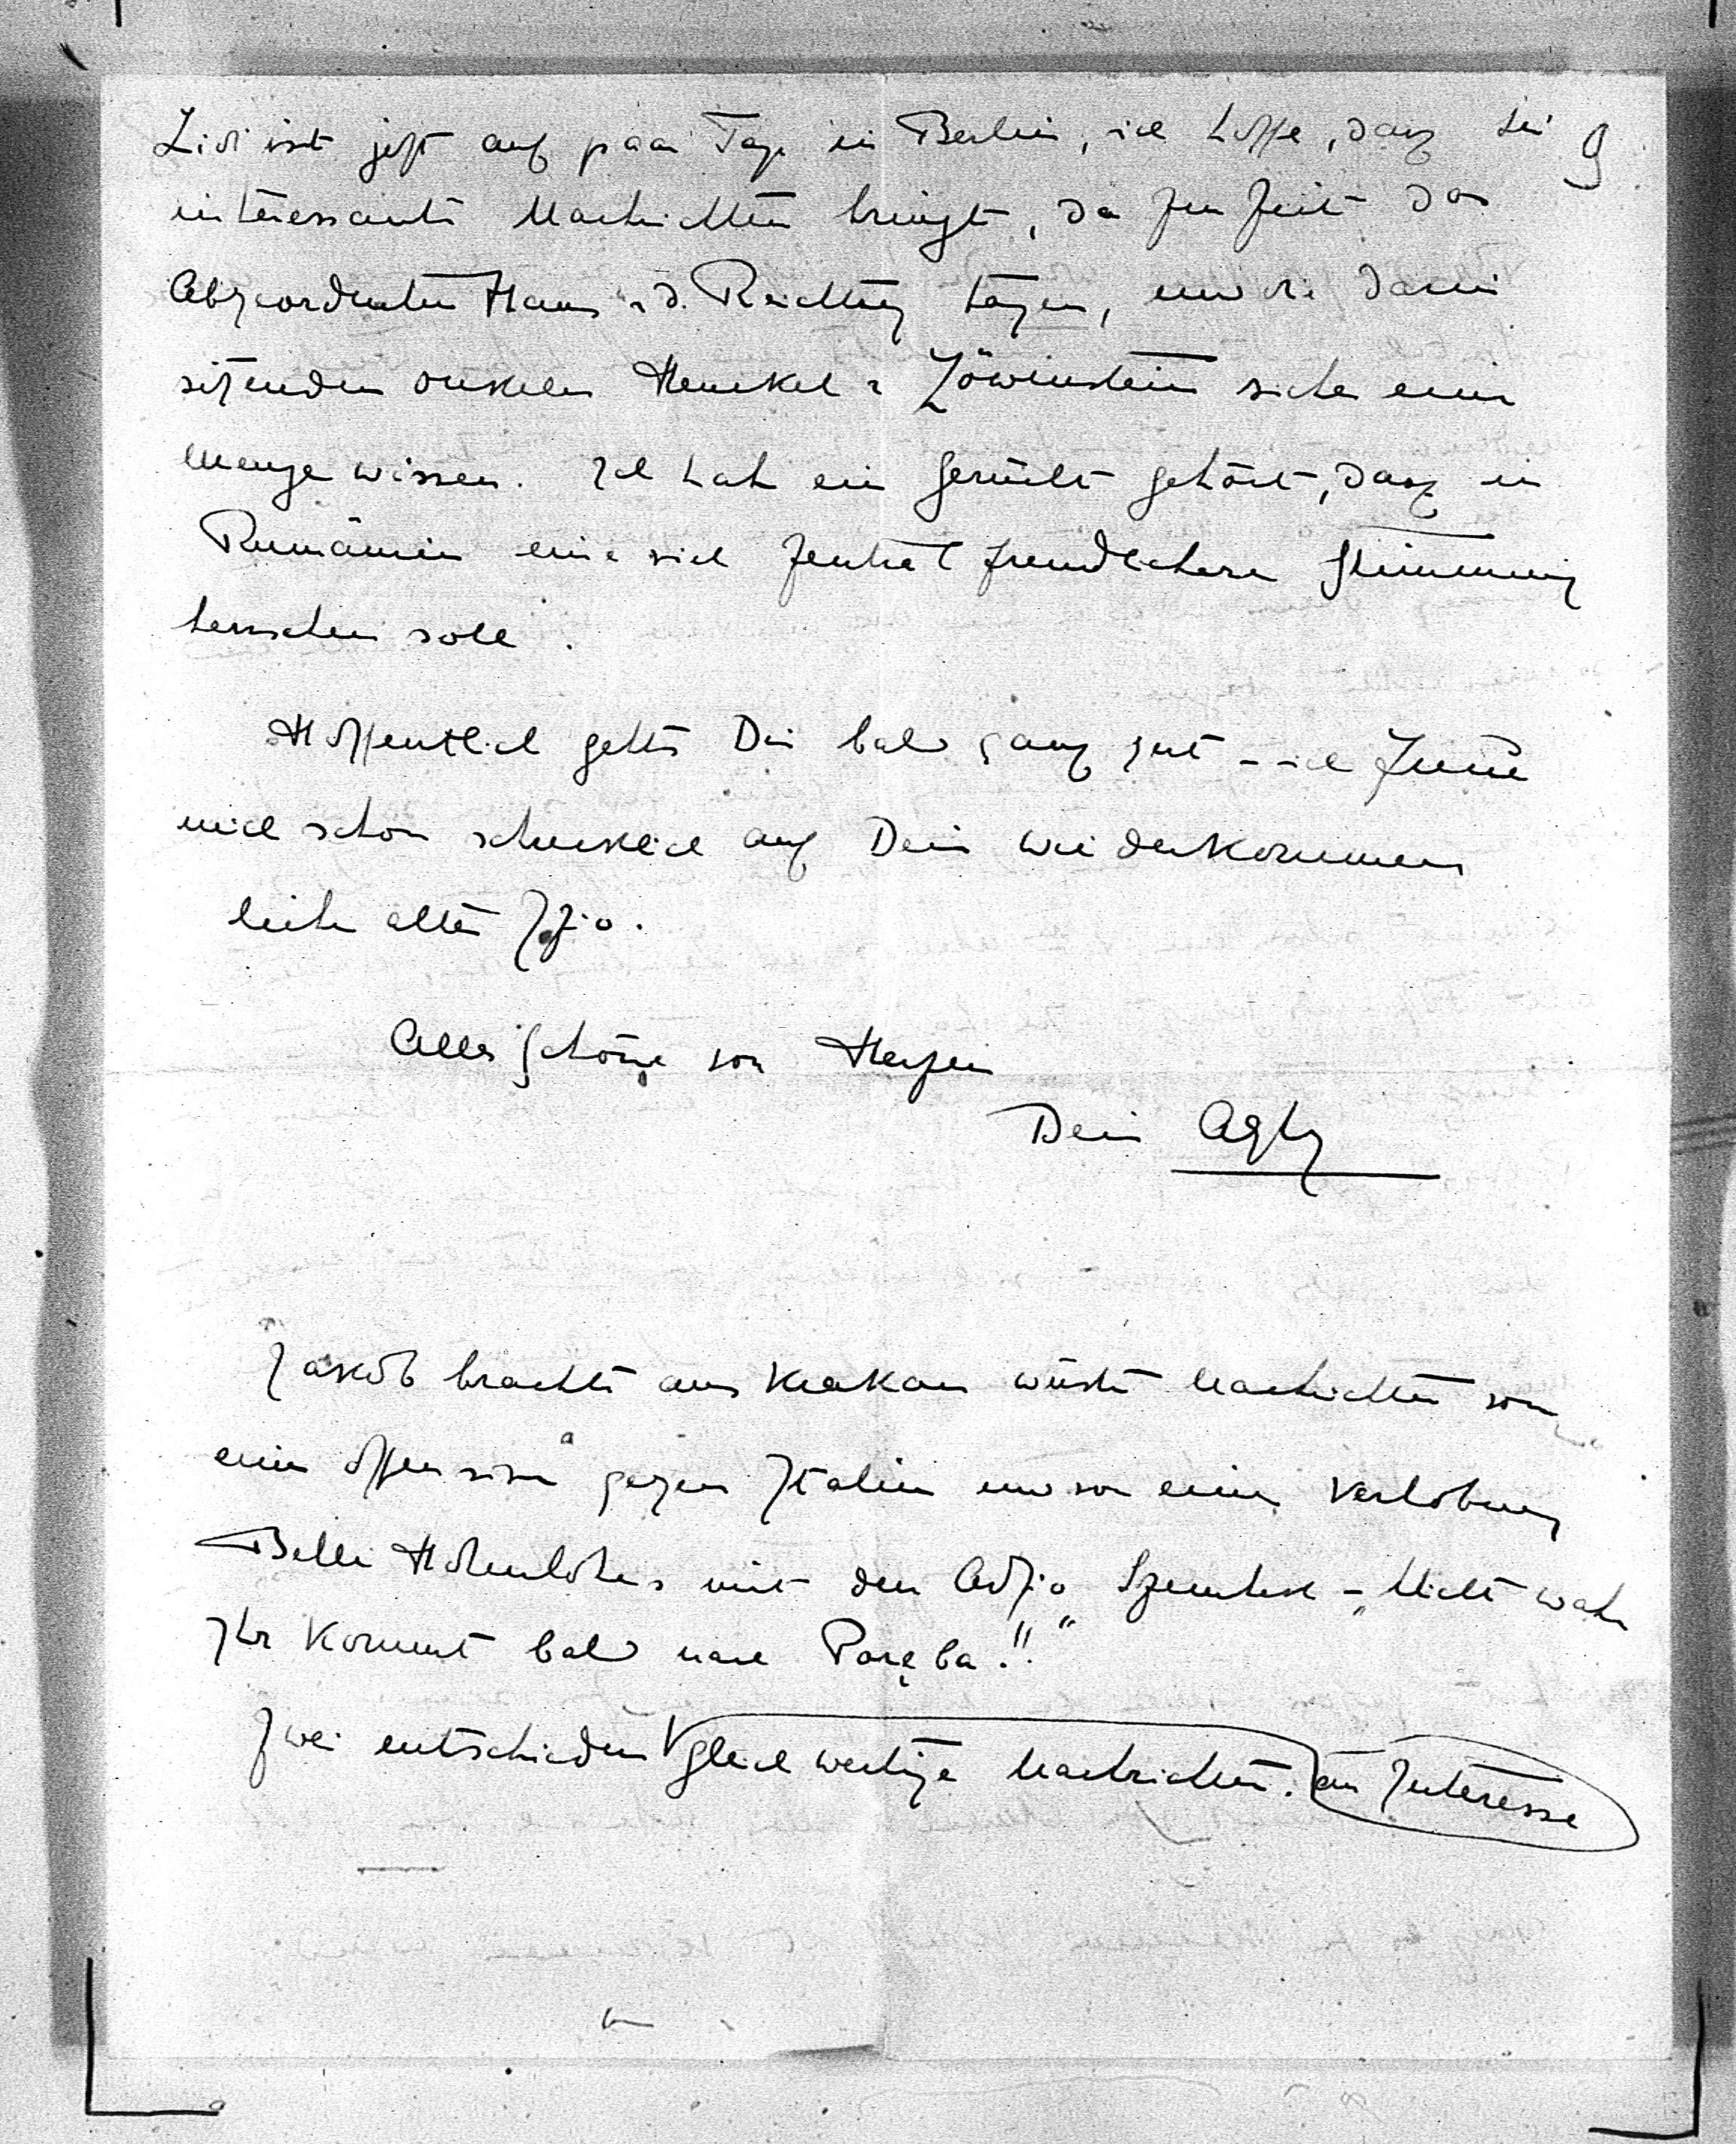 9
Lidi ist jetzt auf paar Tage in Berlin, ich hoffe, dass sie
interessante Nachrichten bringt, da zur Zeit das
Abgeordneten Haus u d. Reichstag tagen, und die darin
sitzenden Onkeln Henckel u Löwenstein sicher eine
Menge wissen. Ich hab ein Gerücht gehört, dass in
Rumänien eine viel zentral freundlichere Stimmung
herrschen soll.
Hoffentlich gehts Dir bald ganz gut – ich freue
mich schon schrecklich auf Dein wiederkommen
lieber alter
Alles Schöne von Herzen
Dein
Jakob brachte aus Krakau wüste Nachrichten von
einer Offensive gegen Italien und von einer Verlobung
Belli Hohenlohes mit dem Adzio Szembek – "Nicht wahr
Ihr kommt bald nach Poręba!!"
Zwei entschieden gleich wertige Nachrichten. an Interesse